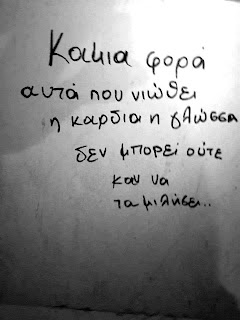 Καμια φορά
αυτά που νιώθει
η καρδια η γλώσσα
δεν μπορεί ούτε
καν να
τα μιλήσει..